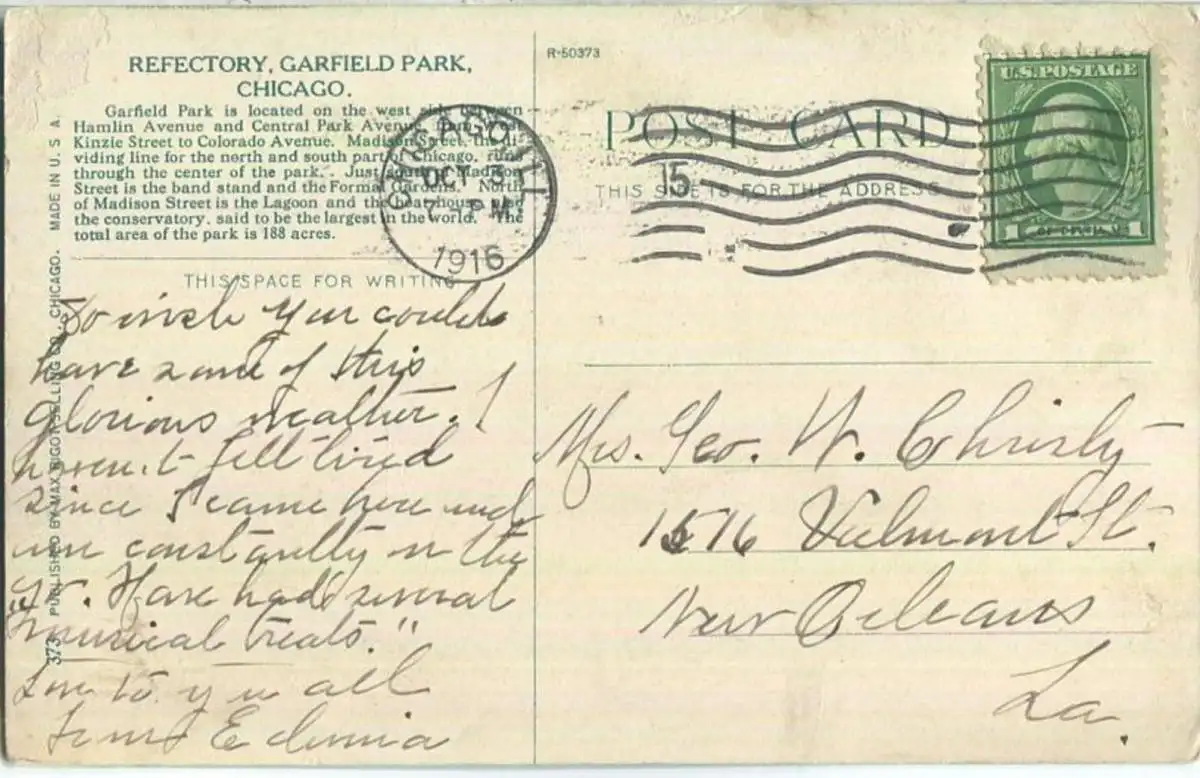 REFECTORY, GARFIELD PARK,
CHICAGO.
Garfield Park is located on the west side between
Hamlin Avenue and Central Park Avenue, from
Kinzie Street to Colorado Avenue. Madison Street, the di-
viding line for the north and south part of Chicago, runs
through the center of the park. Just south of Madison
Street is the band stand and the Formal Gardens. North
of Madison Street is the Lagoon and the boathouse and
the conservatory, said to be the largest in the world. The
total area of the park is 188 acres.
THIS SPACE FOR WRITING
So wish you could
have some of this
glorious weather. I
haven't felt tired
since I came here and
am constantly on the
go. Have had several
"musical treats."
Love to you all
from
373 PUBLISHED BY MAX RIGOT SELLING CO., CHICAGO. MADE IN U. S. A.
R-50373
POST CARD
THIS SIDE IS FOR THE ADDRESS
CHICAGO, ILL
OCT
7 PM
1916
15
U.S. POSTAGE
1 1
Mrs. Geo. W. Christy
1516 Valmont St.
New Orleans
La.